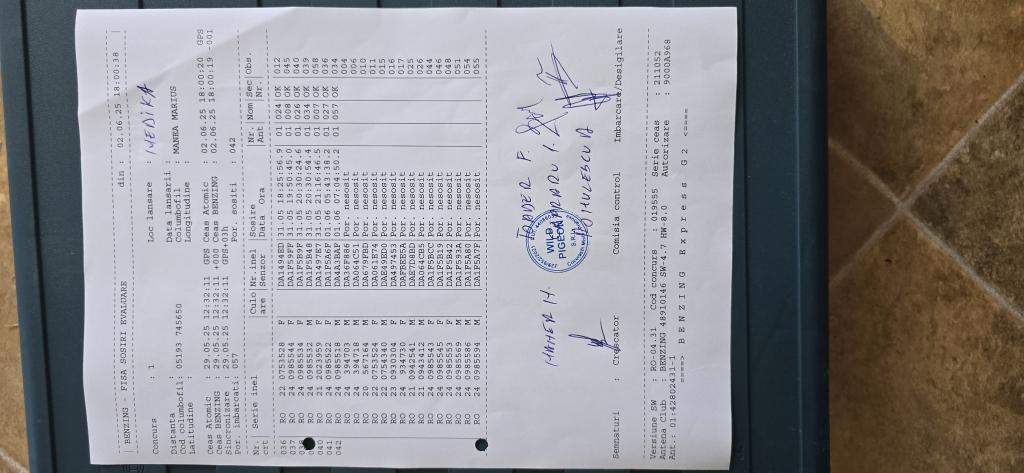 BENZING - FISA SOSIRI EVALUARE din : 02.06.25 18:00:38
Concurs : 1 Loc lansare : MEDIKA
Distanta : Data lansarii :
Cod columbofil: 05193 745650 Columbofil : MANEA MARIUS
Latitudine : Longitudine :
Ceas Atomic : 29.05.25 12:32:11 GPS Ceas Atomic : 02.06.25 18:00:20 GPS
Ceas BENZING : 29.05.25 12:32:11 +000 Ceas BENZING : 02.06.25 18:00:19 -001
Sincronizare : 29.05.25 12:32:11 GPS+03h
Por. imbarcati: 057 Por. sositi : 042
Nr. Serie inel Culo Nr.inel Sosire Nr. Nom Sec Obs.
crt. are Senzor Data Ora Ant Nr.
036 RO 22 0753528 F DA1494ED 31.05 18:25:56.9 01 024 OK 012
037 RO 24 0985544 F DA1F59FF 31.05 19:50:45.0 01 008 OK 045
RO 24 0985534 F DA1F5B9F 31.05 20:30:24.6 01 026 OK 040
RO 24 0985532 M DA1F5B48 31.05 20:30:54.4 01 034 OK 039
RO 21 1023959 M DA1497E7 31.05 21:16:46.5 01 007 OK 058
041 RO 24 0985522 F DA1F5A6F 01.06 05:43:38.2 01 027 OK 036
042 RO 24 0985518 M DA4A3BAF 01.06 07:04:50.2 01 057 OK 034
RO 24 394703 M DA36F886 Por. nesosit 004
RO 24 394718 M DA064C51 Por. nesosit 006
RO 20 567164 M DA679FBD Por. nesosit 010
RO 22 0753524 F DA061E74 Por. nesosit 011
RO 22 0754340 M DAE493D0 Por. nesosit 015
RO 23 0939304 F DA497453 Por. nesosit 016
RO 24 934730 F DAFBEE5A Por. nesosit 017
RO 21 0942541 M DAE7D8BD Por. nesosit 025
RO 21 0943412 M DA064CB5 Por. nesosit 026
RO 24 0985543 F DA1F5BCC Por. nesosit 044
RO 24 0985545 F DA1F5B19 Por. nesosit 046
RO 24 0985553 F DA1F5B42 Por. nesosit 048
RO 24 0985569 M DA1F593A Por. nesosit 051
RO 24 0985586 M DA1F5A80 Por. nesosit 054
RO 24 0985594 M DA1F5A7F Por. nesosit 055
WILD PIGEON
Semnaturi : Crescator Comisia control Imbarcare/Desigilare
Versiune SW : RO-04.31 Cod concurs : 019555 Serie ceas : 211052
Antena Club : BENZING 48910146 SW-4.7 HW-8.0 Autorizare : 9000A968
Ant.: 01:42802431-1
====> B E N Z I N G E x p r e s s G 2 <====